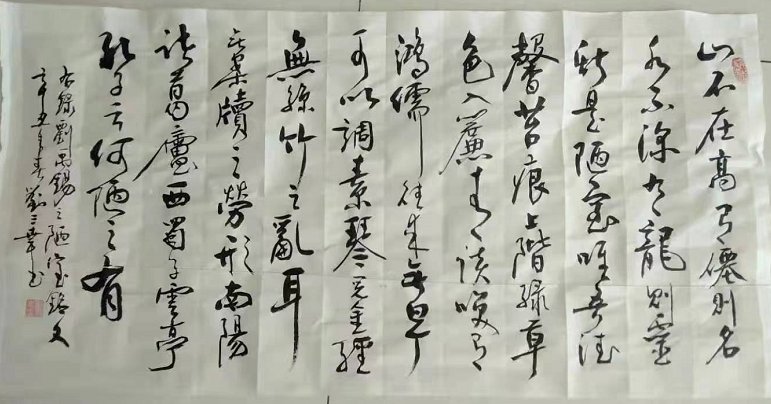 山不在高有僊則名
水不深有龍則靈
斯是陋室唯吾德
馨苔痕上階緑草
色入簾青談笑有
鴻儒往来無白丁
可以調素琴閱金經
無絲竹之亂耳
無案牘之勞形南陽
諸葛廬西蜀子雲亭
孔子云何陋之有
右錄劉禹錫之陋室銘文
辛丑之春劉三書